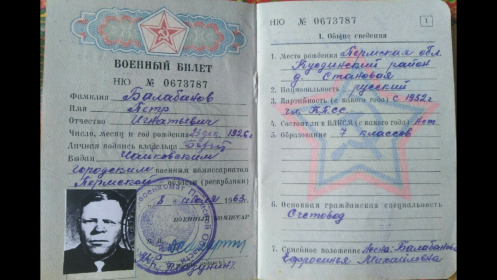 ВОЕННЫЙ БИЛЕТ
НЮ № 0673787
Фамилия Балабанов
Имя Петр
Отчество Игнатьевич
Число, месяц и год рождения 1926 г
Личная подпись владельца
Выдан Чайковским
городским военным комиссариатом
Пермской области (республики)
1963 г.
ВОЕННЫЙ КОМИССАР
НЮ № 0673787
1
1. Общие сведения
1. Место рождения Пермская обл
Куединский район
д. Становая
2. Национальность русский
3. Партийность (с какого года) с 1952 г
чл. КПСС
4. Состоит ли в ВЛКСМ (с какого года) нет
5. Образование 7 классов
6. Основная гражданская специальность
Счетовод
7. Семейное положение жена: Балабанова
Ефросинья Михайловна